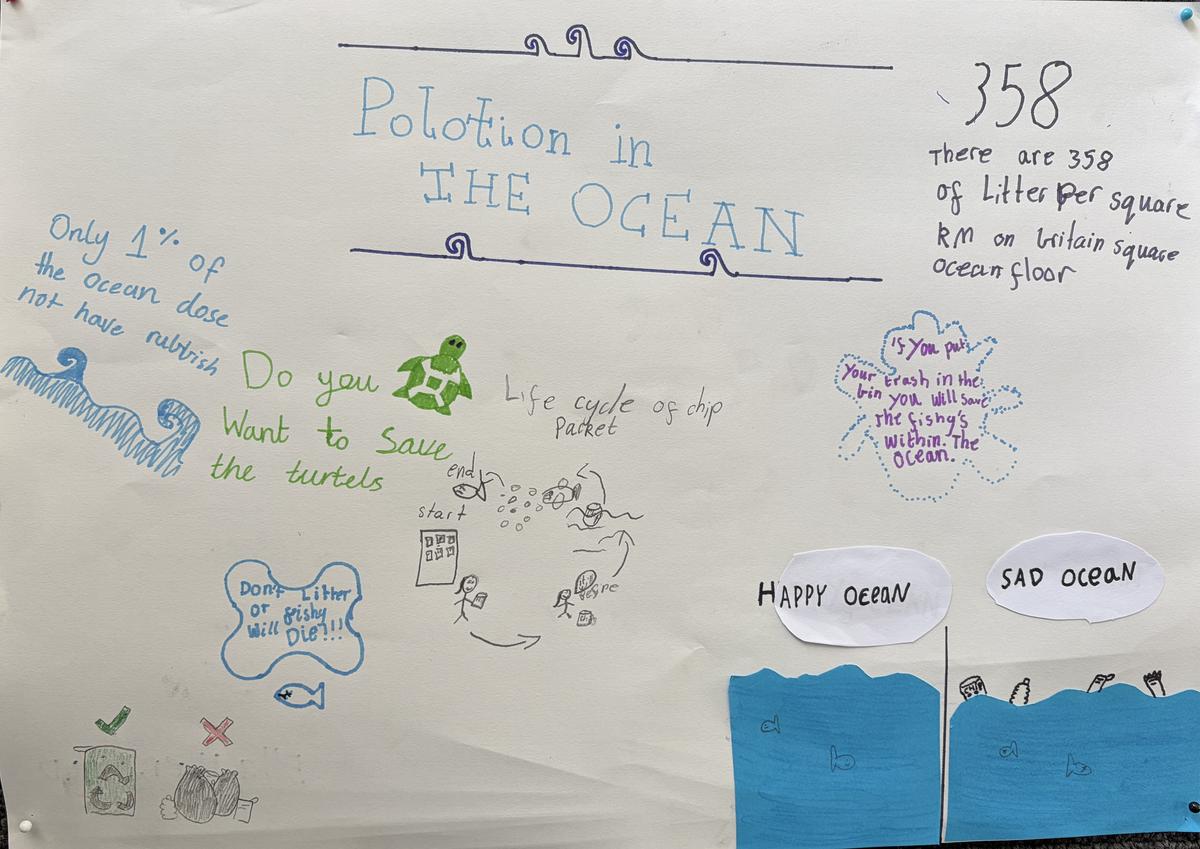 Polotion in
THE OCEAN
358
There are 358
of Litter Per square
KM on britain square
Ocean floor
Only 1% of
the ocean dose
not have rubbish
Do you
Want to Save
the turtels
Life cycle of chip
Packet
end
start
If You put
Your trash in the
bin you will save
the fishy's
within. The
Ocean.
Don't Litter
or fishy
will Die!!!
HAPPY OCEAN
SAD OCEAN